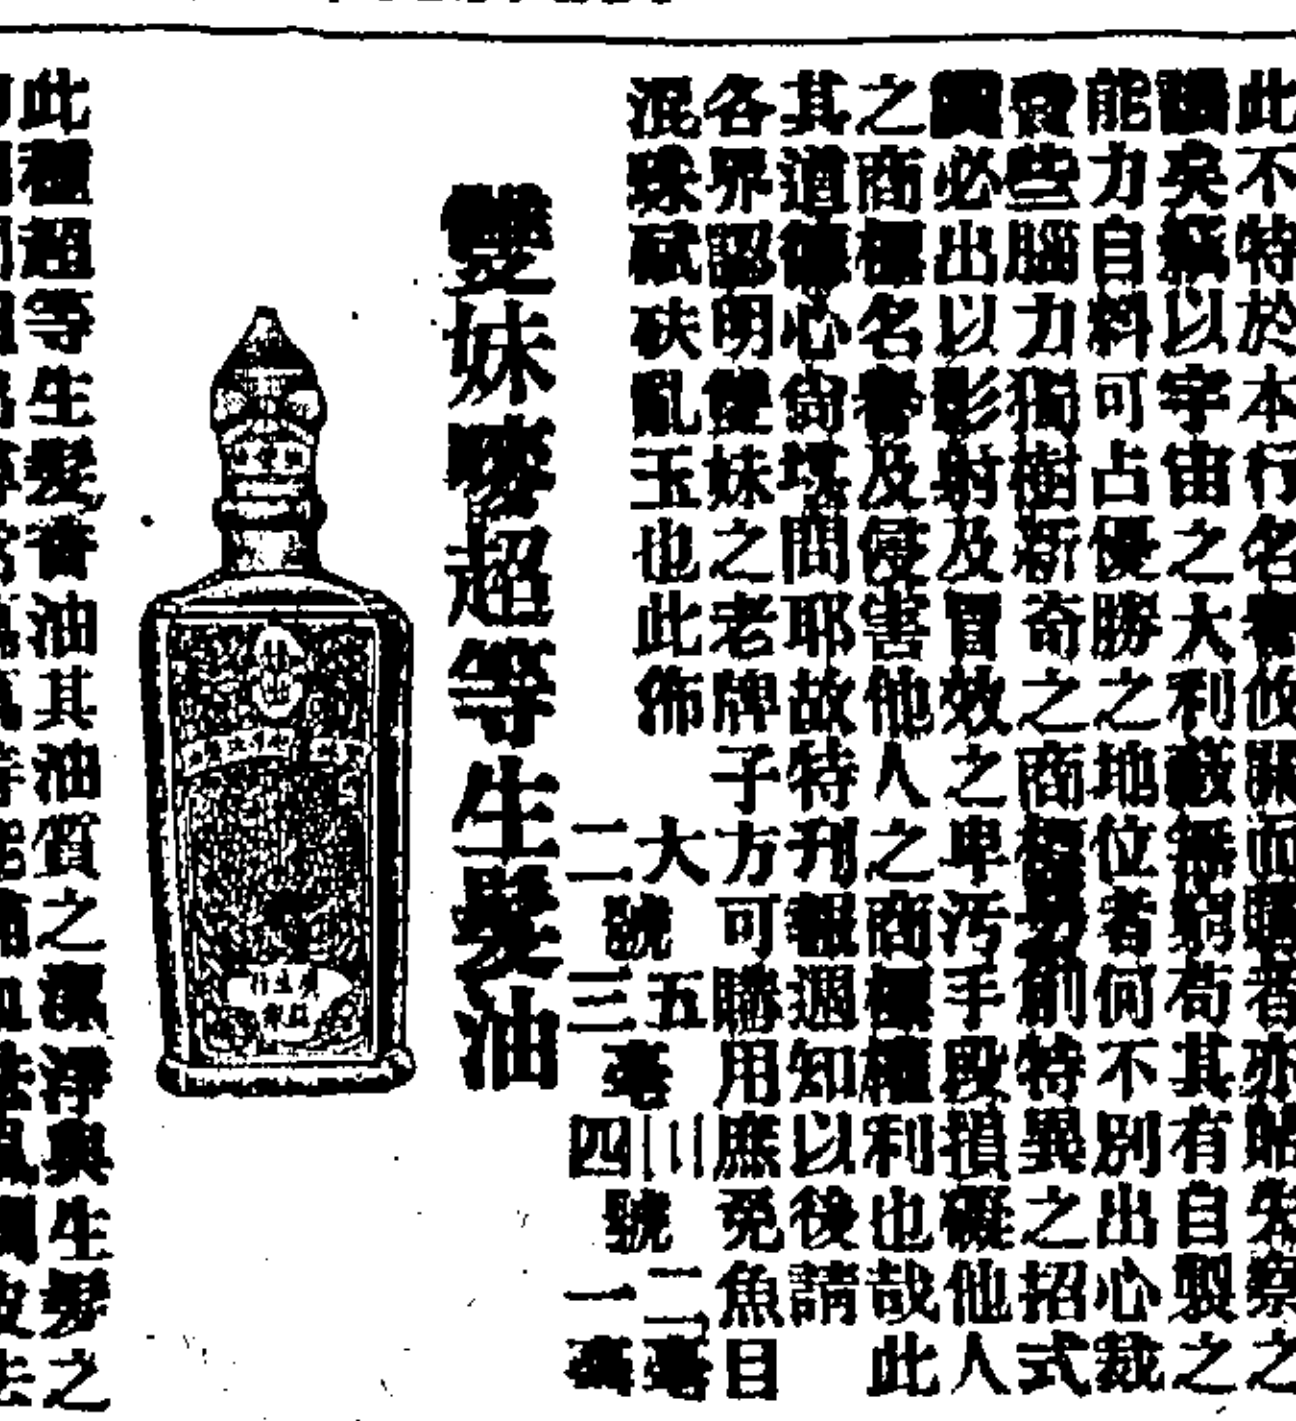 此不特於本行名譽攸關而購者亦蛤失察之
誚矣竊以宇宙之大利藪無窮苟其有自製之
能力自料可占優勝之地位者何不別出心裁
費些腦力獨樹新奇之商標另創特異之招式
必出以影射及冒效之卑污手段損礙他人
之商標名譽及侵害他人之商標權利也哉此
其道德心尙堪問耶故特刋報週知以後請
各界認明雙妹之老牌子方可購用庶免魚目
混珠碔砆亂玉也此佈
大號五毫 川號二毫
二三四一
雙妹嘜超等生髮油
此種超等生髮香油其油質之潔淨與生髮之